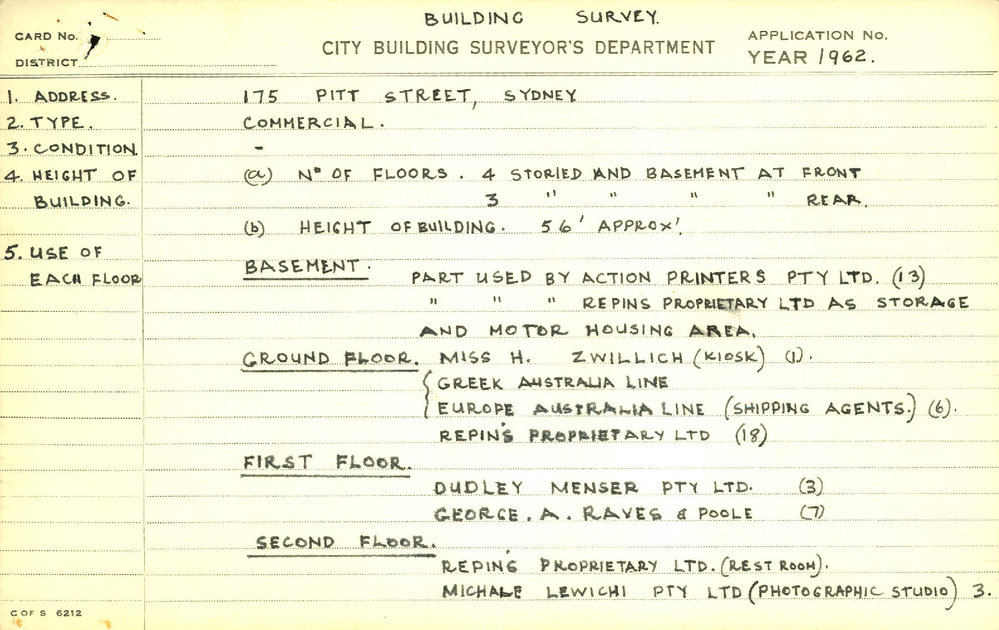 BUILDING SURVEY.
CARD No.
CITY BUILDING SURVEYOR'S DEPARTMENT
APPLICATION No.
DISTRICT
YEAR 1962.
1. ADDRESS. 175 PITT STREET, SYDNEY
2. TYPE. COMMERCIAL.
3. CONDITION. -
4. HEIGHT OF (a) No OF FLOORS. 4 STORIED AND BASEMENT AT FRONT
BUILDING. 3 " " " " REAR.
(b) HEIGHT OF BUILDING. 56' APPROX'.
5. USE OF
EACH FLOOR
BASEMENT.
PART USED BY ACTION PRINTERS PTY LTD. (13)
" " " REPINS PROPRIETARY LTD AS STORAGE
AND MOTOR HOUSING AREA.
GROUND FLOOR. MISS H. ZWILLICH (KIOSK) (1).
{ GREEK AUSTRALIA LINE
EUROPE AUSTRALIA LINE (SHIPPING AGENTS.) (6).
REPIN'S PROPRIETARY LTD (18)
FIRST FLOOR.
DUDLEY MENSER PTY LTD. (3)
GEORGE. A. RAVES & POOLE (7)
SECOND FLOOR.
REPIN'S PROPRIETARY LTD. (REST ROOM).
MICHALE LEWICHI PTY LTD (PHOTOGRAPHIC STUDIO) 3.
C OF S 6212